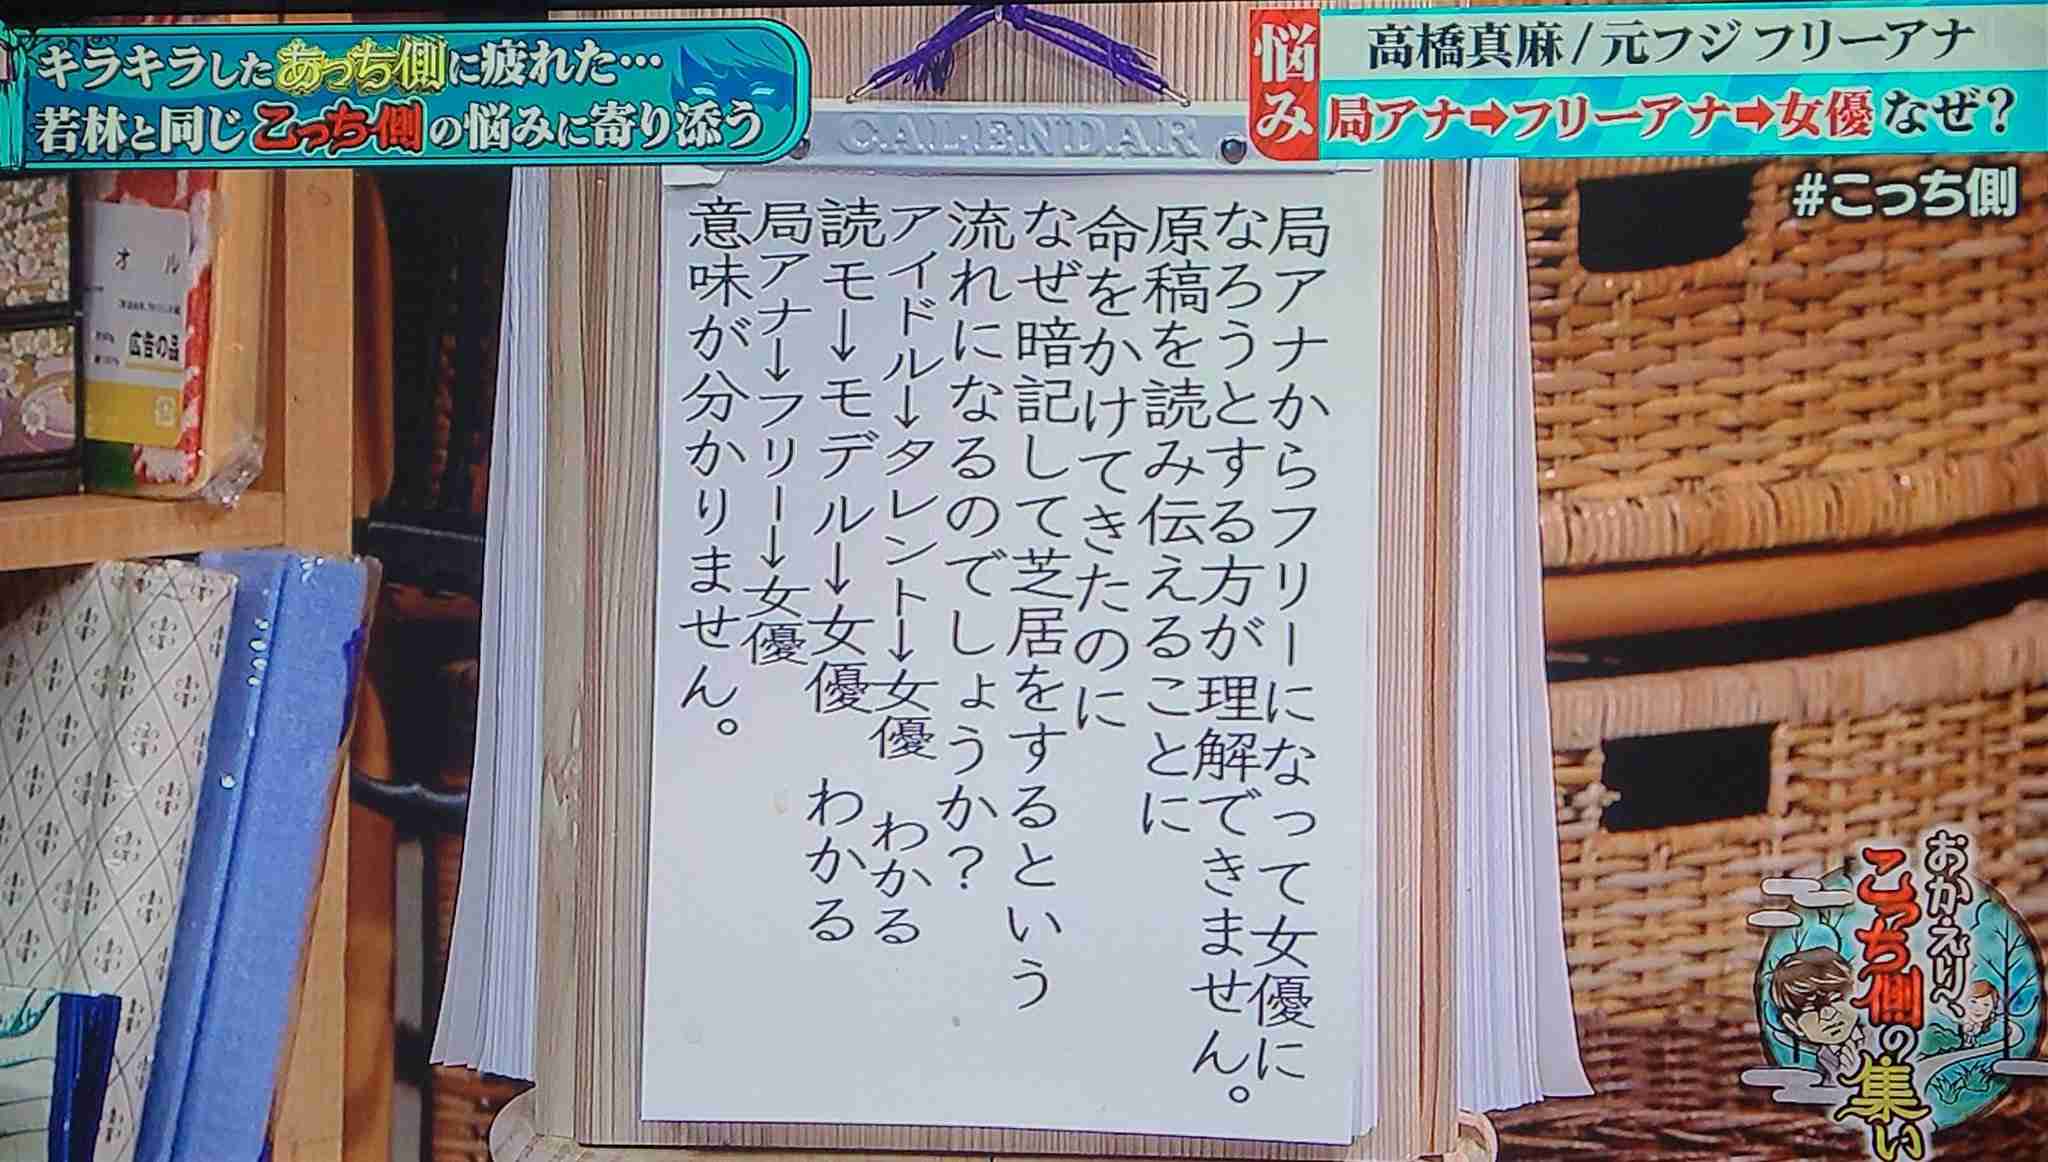 キラキラしたあっち側に疲れた…
若林と同じこっち側の悩みに寄り添う
悩み
高橋真麻/元フジ フリーアナ
局アナ➡フリーアナ➡女優 なぜ?
#こっち側
CALENDAR
局アナからフリーになって女優に
なろうとする方が理解できません。
原稿を読み伝えることに
命をかけてきたのに
なぜ暗記して芝居をするという
流れになるのでしょうか?
アイドル→タレント→女優 わかる
読モ→モデル→女優 わかる
局アナ→フリー→女優
意味が分かりません。
オル
広告の品
おかえり、
こっち側の
集い